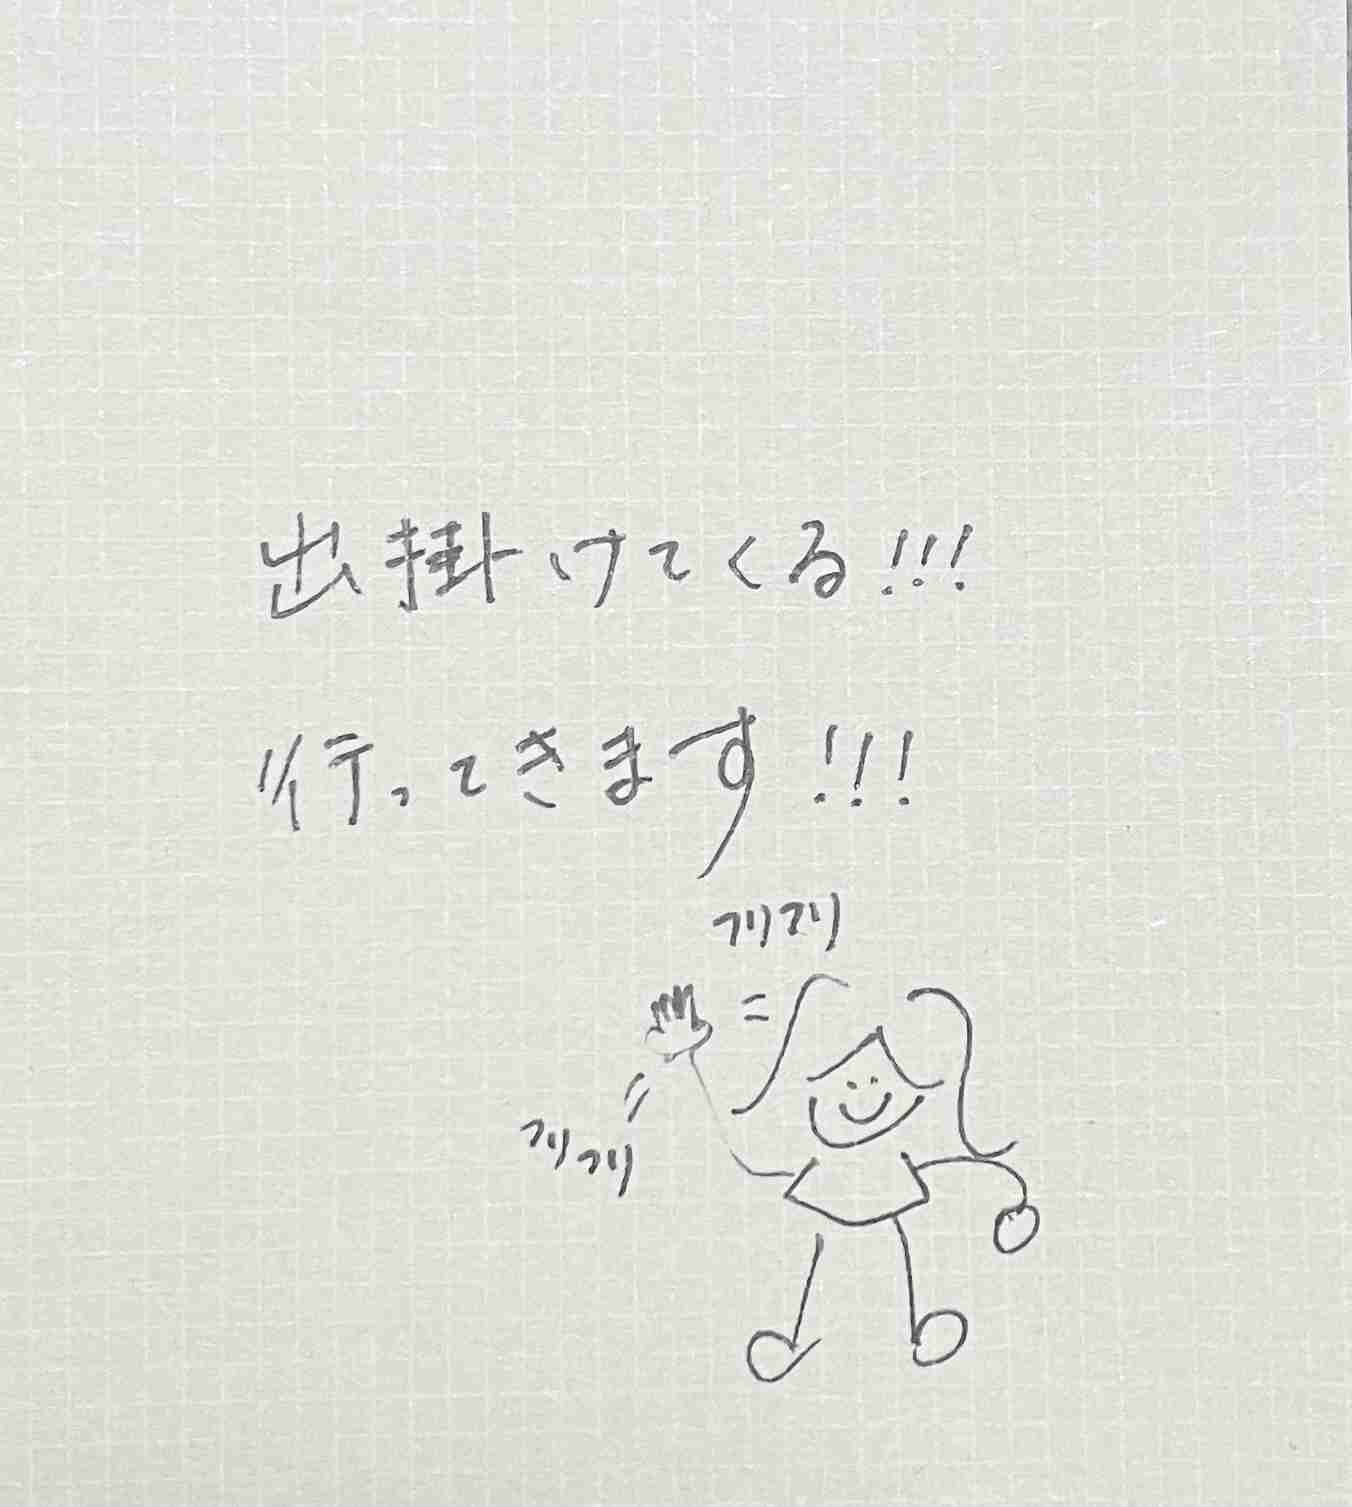 出掛けてくる!!!
行ってきます!!!
フリフリ
フリフリ